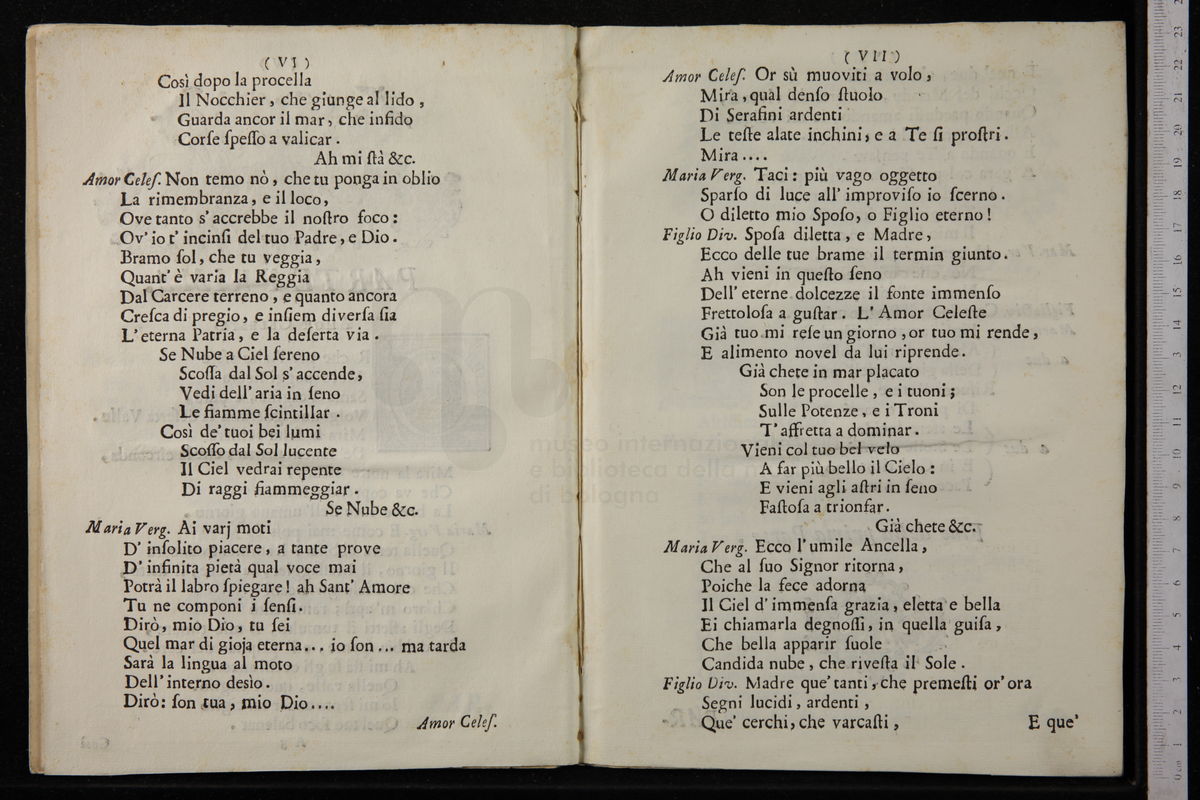 ( VI )
Così dopo la procella
Il Nocchier, che giunge al lido,
Guarda ancor il mar, che infido
Corſe ſpeſſo a valicar.
Ah mi ſtà &c.
Amor Celeſ. Non temo nò, che tu ponga in oblio
La rimembranza, e il loco,
Ove tanto s' accrebbe il noſtro foco:
Ov' io t' incinſi del tuo Padre, e Dio.
Bramo ſol, che tu veggia,
Quant' è varia la Reggia
Dal Carcere terreno, e quanto ancora
Creſca di pregio, e inſiem diverſa ſia
L' eterna Patria, e la deſerta via.
Se Nube a Ciel ſereno
Scoſſa dal Sol s' accende,
Vedi dell' aria in ſeno
Le fiamme ſcintillar.
Così de' tuoi bei lumi
Scoſſo dal Sol lucente
Il Ciel vedrai repente
Di raggi fiammeggiar.
Se Nube &c.
Maria Verg. Ai varj moti
D' inſolito piacere, a tante prove
D' infinita pietà qual voce mai
Potrà il labro ſpiegare! ah Sant' Amore
Tu ne componi i ſenſi.
Dirò, mio Dio, tu ſei
Quel mar di gioja eterna... io ſon... ma tarda
Sarà la lingua al moto
Dell' interno desìo.
Dirò: ſon tua, mio Dio....
Amor Celeſ.
( VII )
Amor Celeſ. Or sù muoviti a volo,
Mira, qual denſo ſtuolo
Di Serafini ardenti
Le teſte alate inchini, e a Te ſi proſtri.
Mira....
Maria Verg. Taci: più vago oggetto
Sparſo di luce all' improviſo io ſcerno.
O diletto mio Spoſo, o Figlio eterno!
Figlio Div. Spoſa diletta, e Madre,
Ecco delle tue brame il termin giunto.
Ah vieni in queſto ſeno
Dell' eterne dolcezze il fonte immenſo
Frettoloſa a guſtar. L' Amor Celeſte
Già tuo mi reſe un giorno, or tuo mi rende,
E alimento novel da lui riprende.
Già chete in mar placato
Son le procelle, e i tuoni;
Sulle Potenze, e i Troni
T' affretta a dominar.
Vieni col tuo bel velo
A far più bello il Cielo:
E vieni agli aſtri in ſeno
Faſtoſa a trionfar.
Già chete &c.
Maria Verg. Ecco l' umile Ancella,
Che al ſuo Signor ritorna,
Poiche la fece adorna
Il Ciel d' immenſa grazia, eletta e bella
Ei chiamarla degnoſſi, in quella guiſa,
Che bella apparir ſuole
Candida nube, che riveſta il Sole.
Figlio Div. Madre que' tanti, che premeſti or' ora
Segni lucidi, ardenti,
Que' cerchi, che varcaſti,
E que'
museo internazio
e biblioteca della m
di bologna